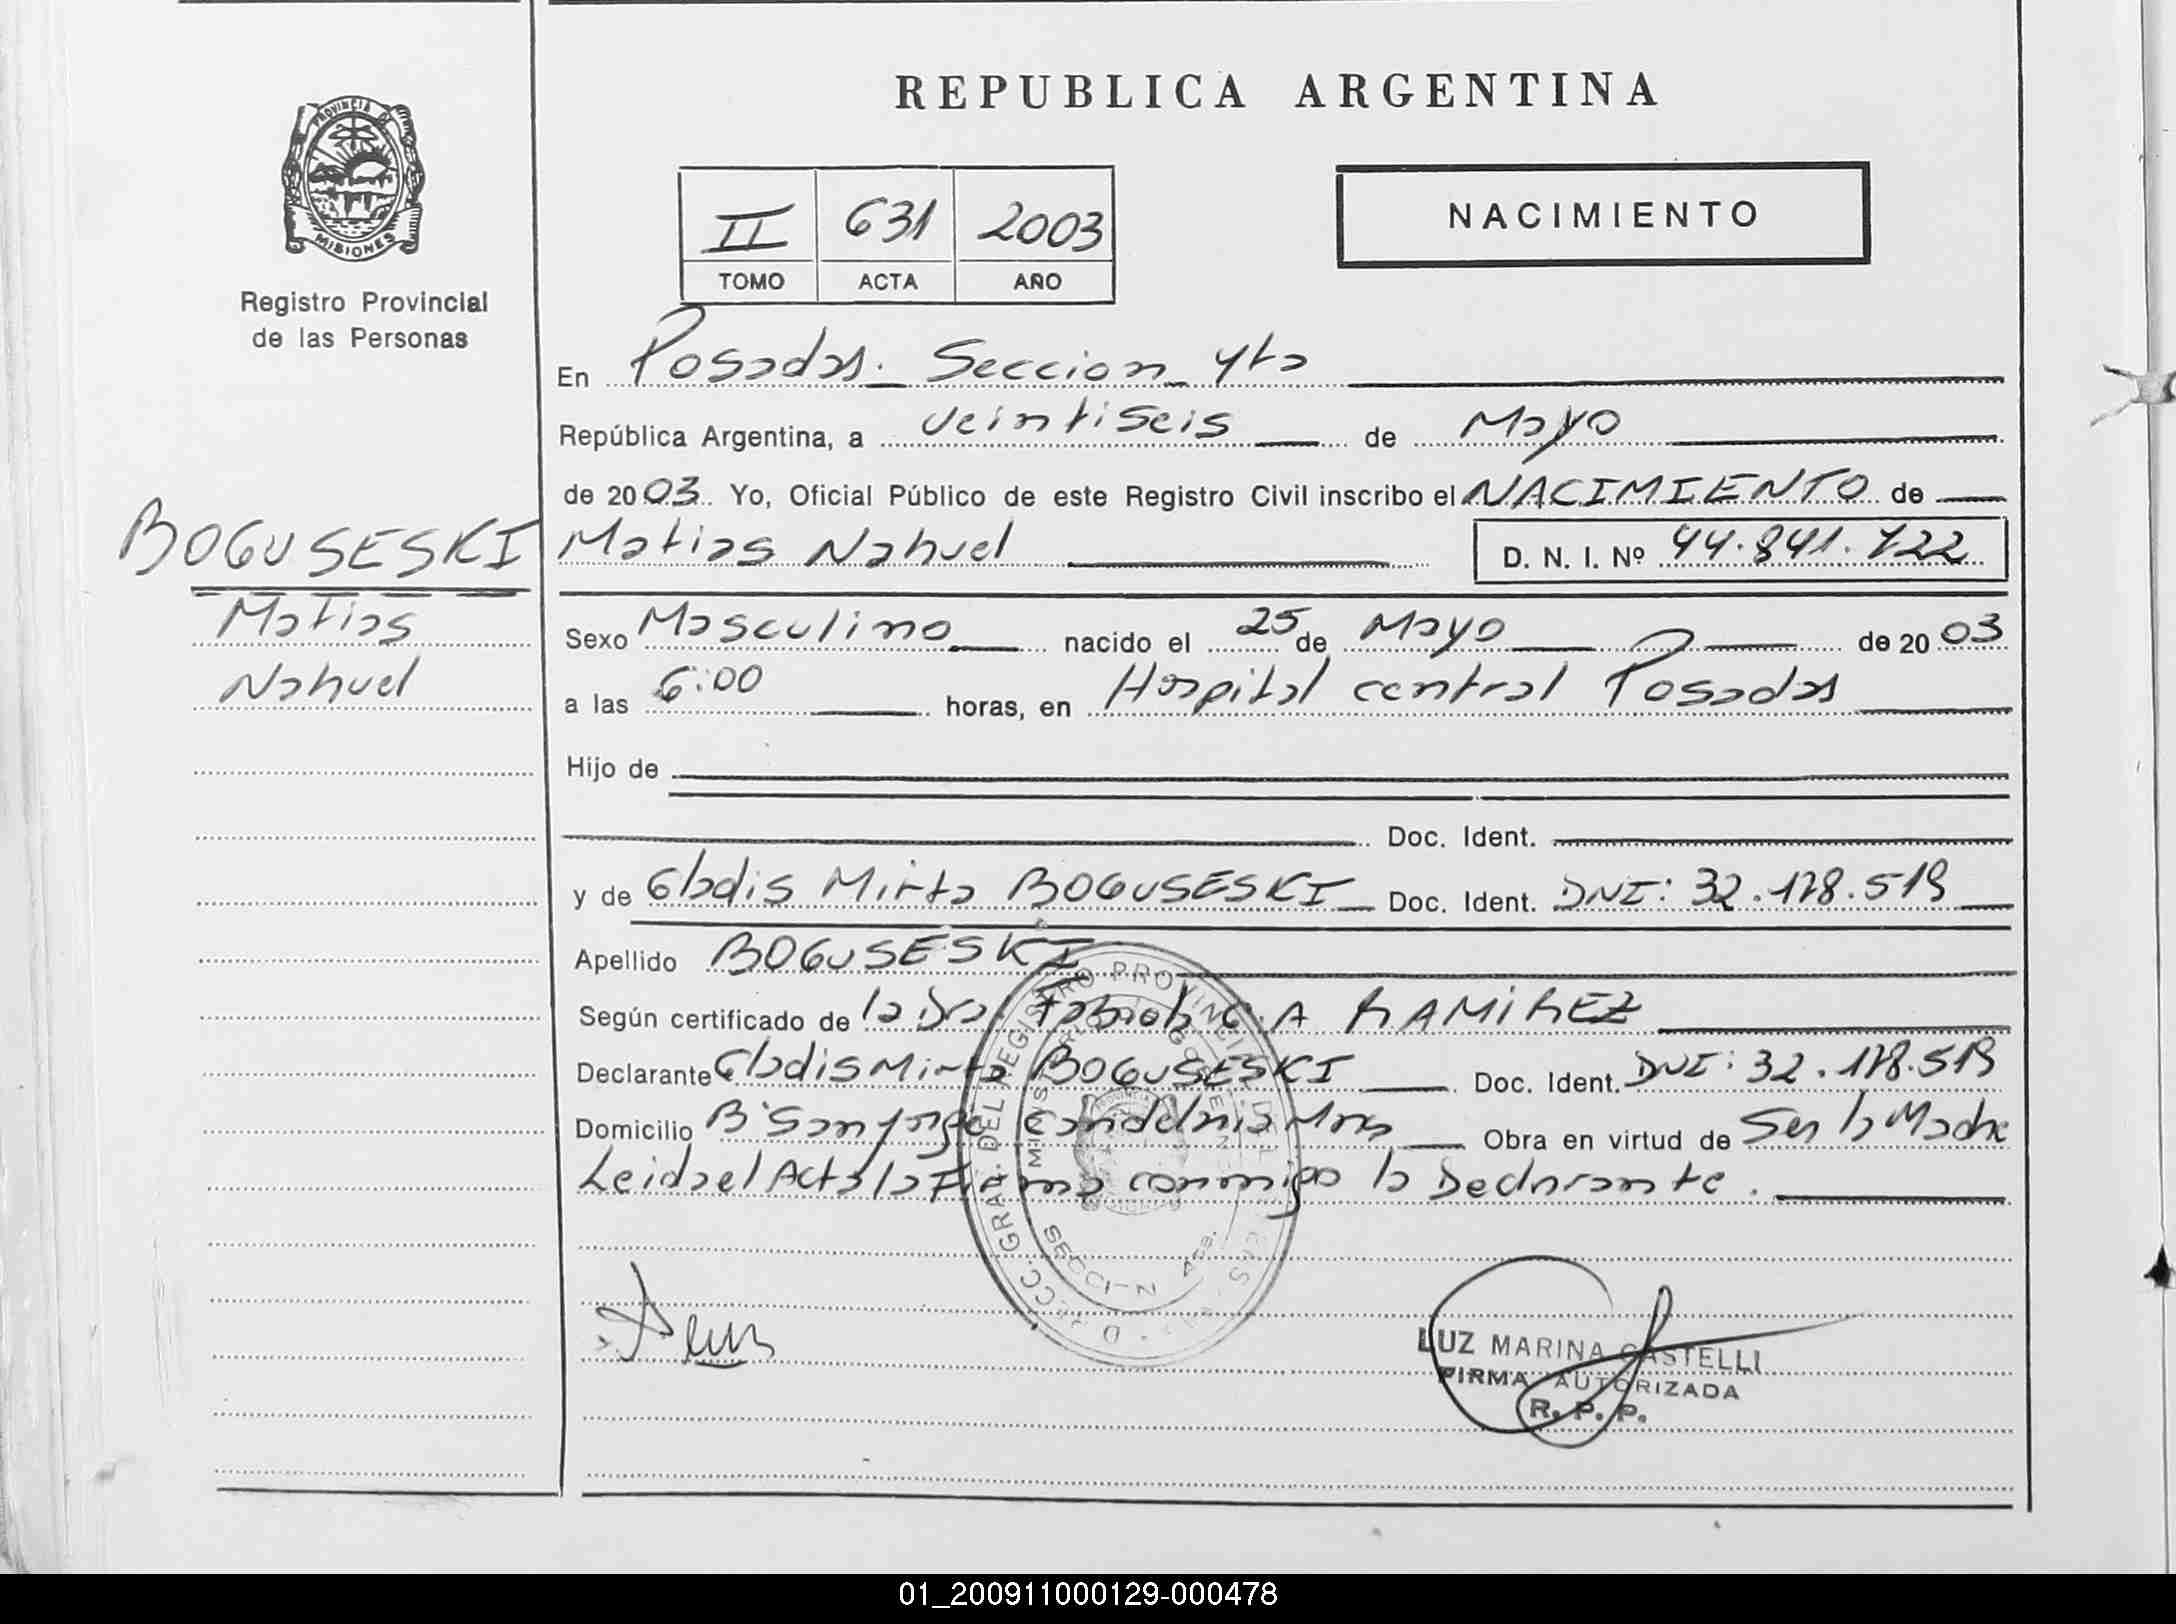 REPUBLICA ARGENTINA
PROVINCIA DE
MISIONES
Registro Provincial
de las Personas
II 631 2003
TOMO ACTA AÑO
NACIMIENTO
En Posadas. Seccion 4ta
República Argentina, a veintiseis de Mayo
de 2003 Yo, Oficial Público de este Registro Civil inscribo el NACIMIENTO de
BOGUSESKI
Matias
Nahuel
Matias Nahuel D. N. I. Nº 44.841.722
Sexo Masculino nacido el 25 de Mayo de 2003
a las 6:00 horas, en Hospital central Posadas
Hijo de
Doc. Ident.
y de Gladis Mirta BOGUSESKI Doc. Ident. DNI: 32.178.519
Apellido BOGUSESKI
Según certificado de la Dra. Fabiola A RAMIREZ
Declarante Gladis Mirta BOGUSESKI Doc. Ident. DNI: 32.178.519
Domicilio B° San Jorge Candelaria Mns Obra en virtud de Ser la Madre
Leida el Acta la Firma conmigo la Declarante.
LUZ MARINA CASTELLI
FIRMA AUTORIZADA
R. P. P.
01_200911000129-000478